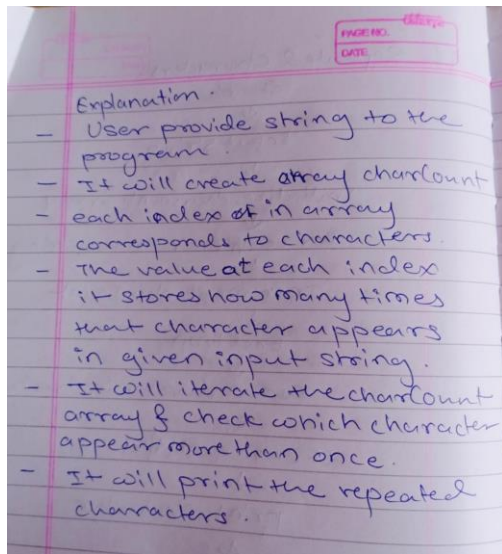 PAGE NO.
DATE
Explanation.
- User provide string to the
program.
- It will create array charCount
- each index in array
corresponds to characters.
- The value at each index
it stores how many times
that character appears
in given input string.
- It will iterate the charCount
array & check which character
appear more than once.
- It will print the repeated
characters.